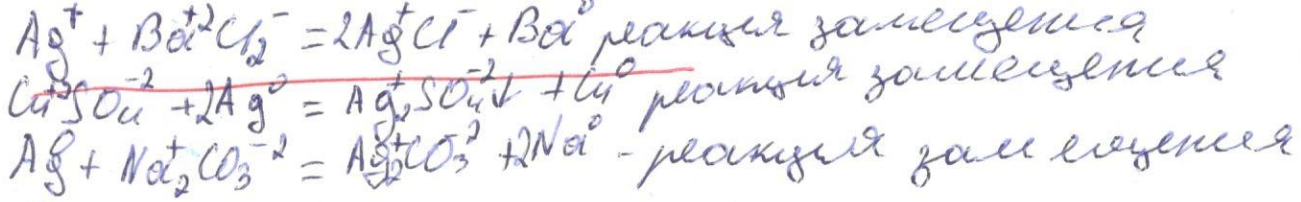 Ag⁺ + Ba⁺²Cl₂⁻ = 2Ag⁺Cl⁻ + Ba⁰ реакция замещения
Cu⁺²SO₄⁻² + 2Ag⁰ = Ag₂⁺SO₄⁻²↓ + Cu⁰ реакция замещения
Ag + Na₂⁺CO₃⁻² = Ag₂⁺CO₃⁻² + 2Na⁰ - реакция замещения